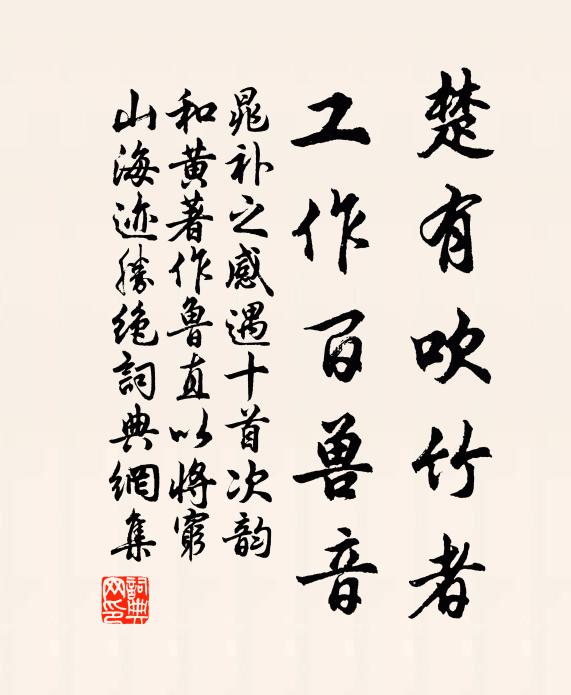 楚有吹竹者
工作百兽音
晁补之感遇十首次韵
和黄著作鲁直以将穷
山海迹胜绝詞典網集
詞典
网印